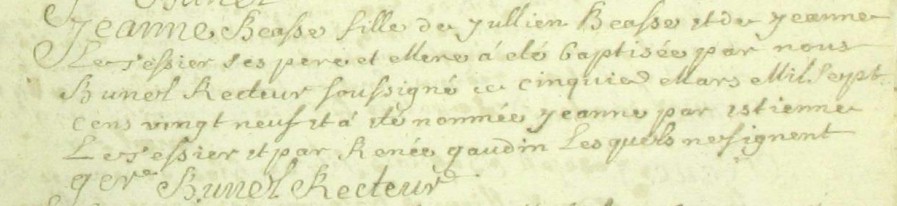 Jeanne Beasse fille de Jullien Beasse et de Jeanne
Le Tessier ses pere et Mere á eté baptisée par nous
Bunel Recteur soussigné ce cinquieᵉ Mars Mil Sept
cens vingt neuf et á eté nommée Jeanne par Estienne
Le Tessier et par Renée gaudin Lesquels ne signent
Bunel Recteur